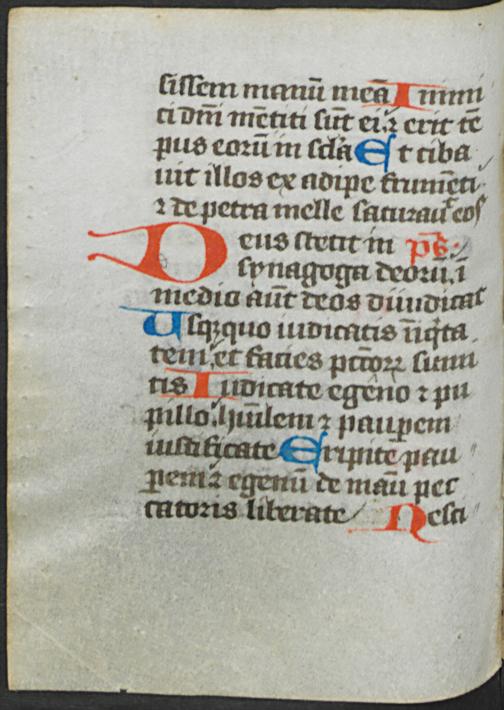 sissem manū meā Inimi
ci dn̄i mētiti sūt ei ⁊ erit tē
pus eorū in scl̄a Et ciba
uit illos ex adipe frumēti
⁊ de petra melle saturauͭ eos
Deus stetit in p̄s
synagoga deorū ī
medio aūt deos diiudicat
Usq̨quo iudicatis īiq̄ta
tem et facies pctōrꝝ sumi
tis Iudicate egeno ⁊ pu
pillo hūilem ⁊ paupem
iustificate Eripite pau
perem ⁊ egenū de manu pec
catoris liberate Nesci